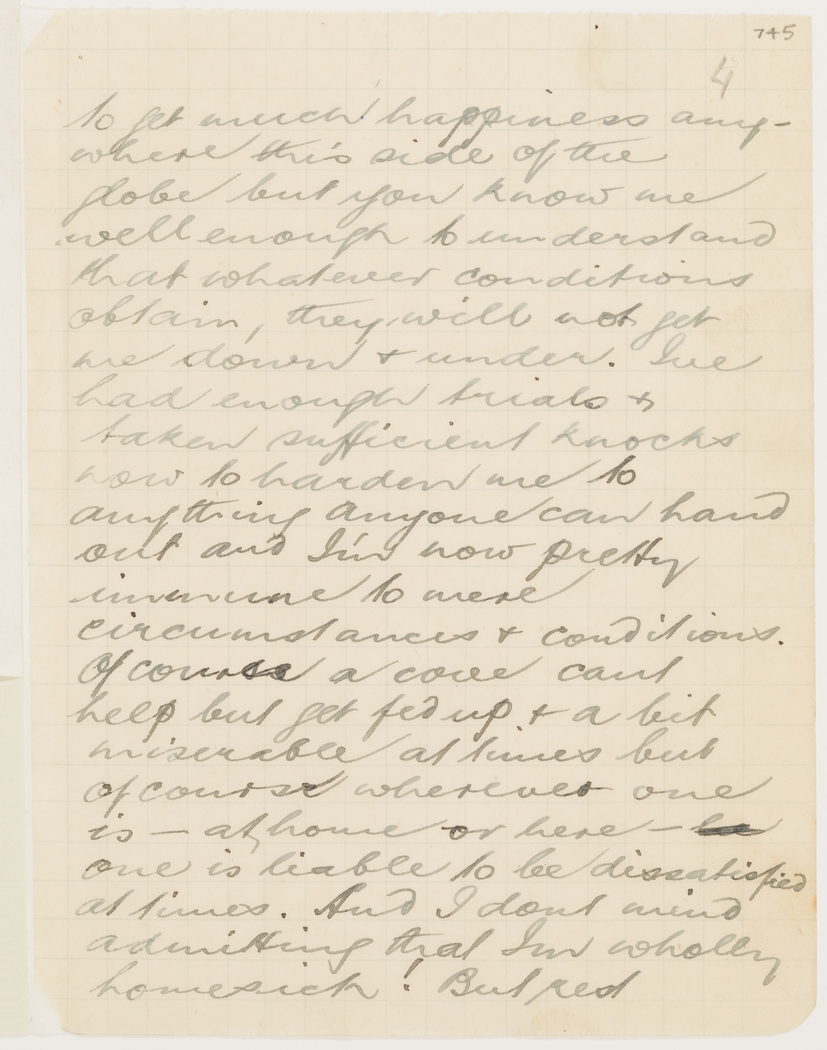 745
4
to get much happiness any-
where this side of the
globe but you know me
well enough to understand
that whatever conditions
obtain, they will not get
me down & under. I've
had enough trials &
taken sufficient knocks
now to harden me to
anything anyone can hand
out and I'm now pretty
immune to mere
circumstances & conditions.
Of course a cove cant
help but get fed up & a bit
miserable at times but
of course wherever one
is — at home or here —
one is liable to be dissatisfied
at times. And I dont mind
admitting that I'm wholly
homesick! But rest